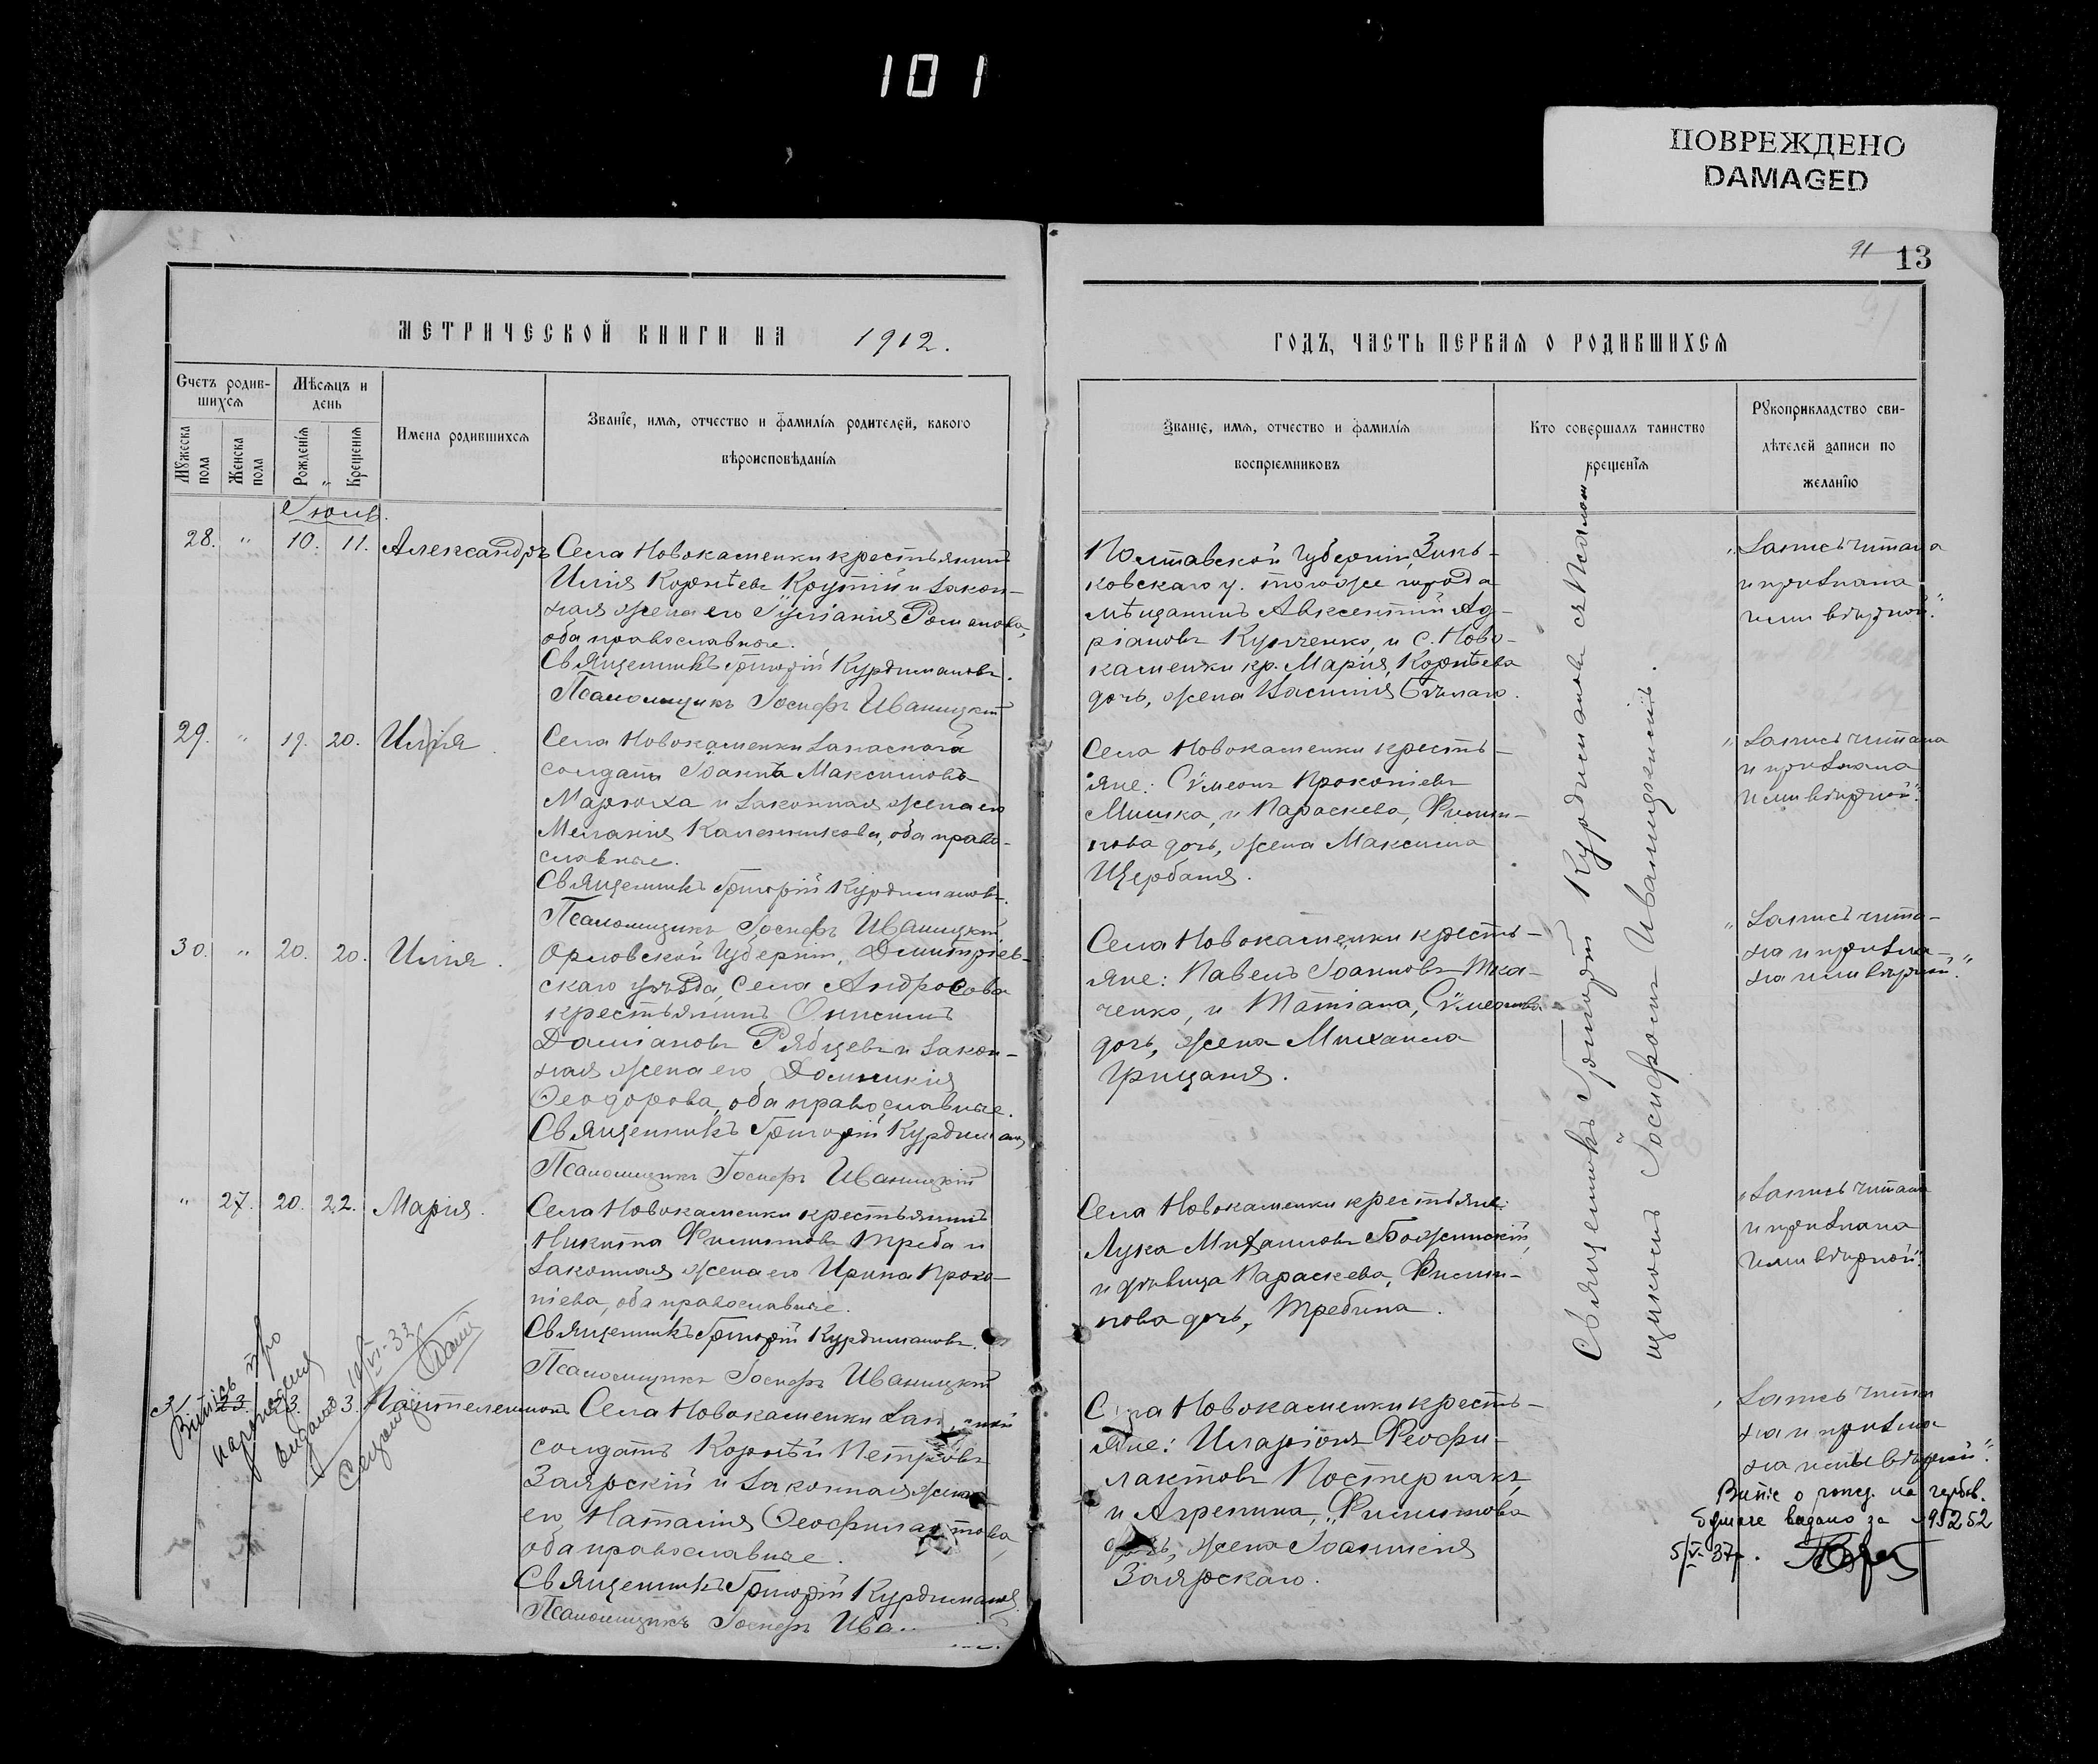 101
ПОВРЕЖДЕНО
DAMAGED
91 13
МЕТРИЧЕСКОЙ КНИГИ НА 1912.
ГОДЪ, ЧАСТЬ ПЕРВАЯ О РОДИВШИХСЯ
Счетъ родив-
шихся
Мѣсяцъ и
день
Мужеска пола
Женска пола
Рожденія
Крещенія
Имена родившихся
Званіе, имя, отчество и фамилія родителей, какого
вѣроисповѣданія
Званіе, имя, отчество и фамилія
воспріемниковъ
Кто совершалъ таинство
крещенія
Рукоприкладство сви-
дѣтелей записи по
желанію
28. " 10. 11. Александръ
Села Новокаменки крестьянинъ
Илія Корнѣевъ Крутій и закон-
ная жена его Іуліанія Романова,
оба православные.
Священникъ Григорій Курдимановъ.
Псаломщикъ Іосифъ Иваницкій
Полтавской губерніи, Зинь-
ковскаго у. тогоже города
мѣщанинъ Авксентій Ад-
ріановъ Курченко, и с. Ново-
каменки кр. Марія, Корнѣева
дочь, жена Василія Бѣлаго.
"Запись читана
и признана
нами вѣрной".
29. " 19. 20. Илія
Села Новокаменки запасной
солдатъ Іоаннъ Максимовъ
Марюха и законная жена его
Меланія Калинникова, оба право-
славные.
Священникъ Григорій Курдимановъ.
Псаломщикъ Іосифъ Иваницкій
Села Новокаменки кресть-
яне: Сѵмеонъ Прокопіевъ
Мишка, и Параскева, Филип-
пова дочь, жена Максима
Щербаня.
"Запись читана
и признана
нами вѣрной".
30. " 20. 20. Илія.
Орловской губерніи, Дмитріев-
скаго уѣзда, села Андросова
крестьянинъ Онисимъ
Даміановъ Рябцевъ и закон-
ная жена его, Домникія
Ѳеодорова, оба православные.
Священникъ Григорій Курдиман
Псаломщикъ Іосифъ Иваницкій
Села Новокаменки кресть-
яне: Павелъ Іоанновъ Тка-
ченко, и Татіана, Сѵмеонова
дочь, жена Михаила
Грицаня.
"Запись чита-
на и призна-
на нами вѣрной."
" 27. 20. 22. Марія.
Села Новокаменки крестьянинъ
Никита Филиповъ Треба и
законная жена его Ирина Проко-
піева, оба православные.
Священникъ Григорій Курдимановъ.
Псаломщикъ Іосифъ Иваницкій
Села Новокаменки крестьяне:
Лука Михаиловъ Божинскій,
и дѣвица Параскева, Филип-
пова дочь, Требина.
"Запись читана
и признана
нами вѣрной".
Пантелеимонъ
Села Новокаменки
солдатъ Корнѣй Петровъ
Заярскій и законная жена
его Наталія Ѳеофилактова,
оба православные.
Священникъ Григорій Курдимановъ
Псаломщикъ Іосифъ Ива
Села Новокаменки кресть-
яне: Иларіонъ Феофи-
лактовъ Постернакъ,
и Агрепина, Филиппова
дочь, жена Іоанникія
Заярскаго.
Запись чита
на и призна
на нами вѣрной".
Священникъ Григорій Курдимановъ съ Псалом-
щикомъ Іосифомъ Иваницкимъ.
Випись про
народження
видано
VI-33
бумаге видано за 95252
5/VI-37р.